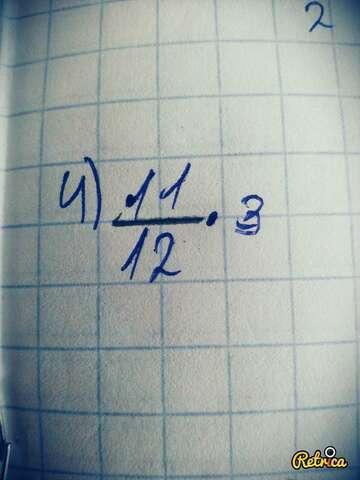 2
4) 11/12 · 3
Retrica